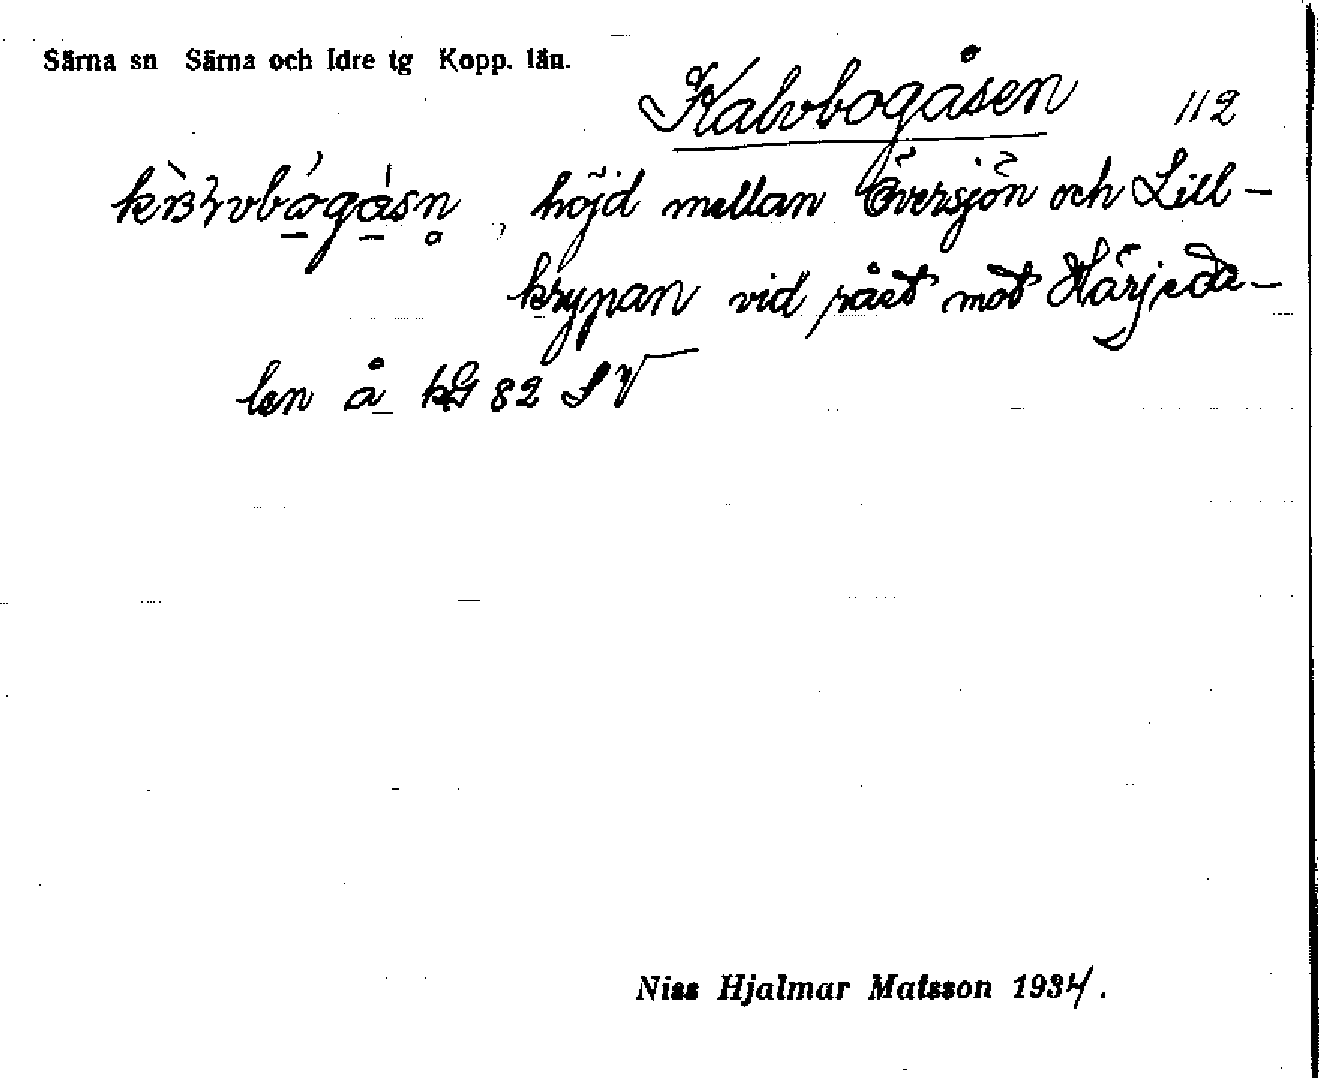 Särna sn Särna och Idre tg Kopp. län.
Kalvbogåsen 112
höjd mellan Översjön och Lill-
krypan vid rået mot Härjeda-
len å kG 82 SV
Niss Hjalmar Matsson 1934.